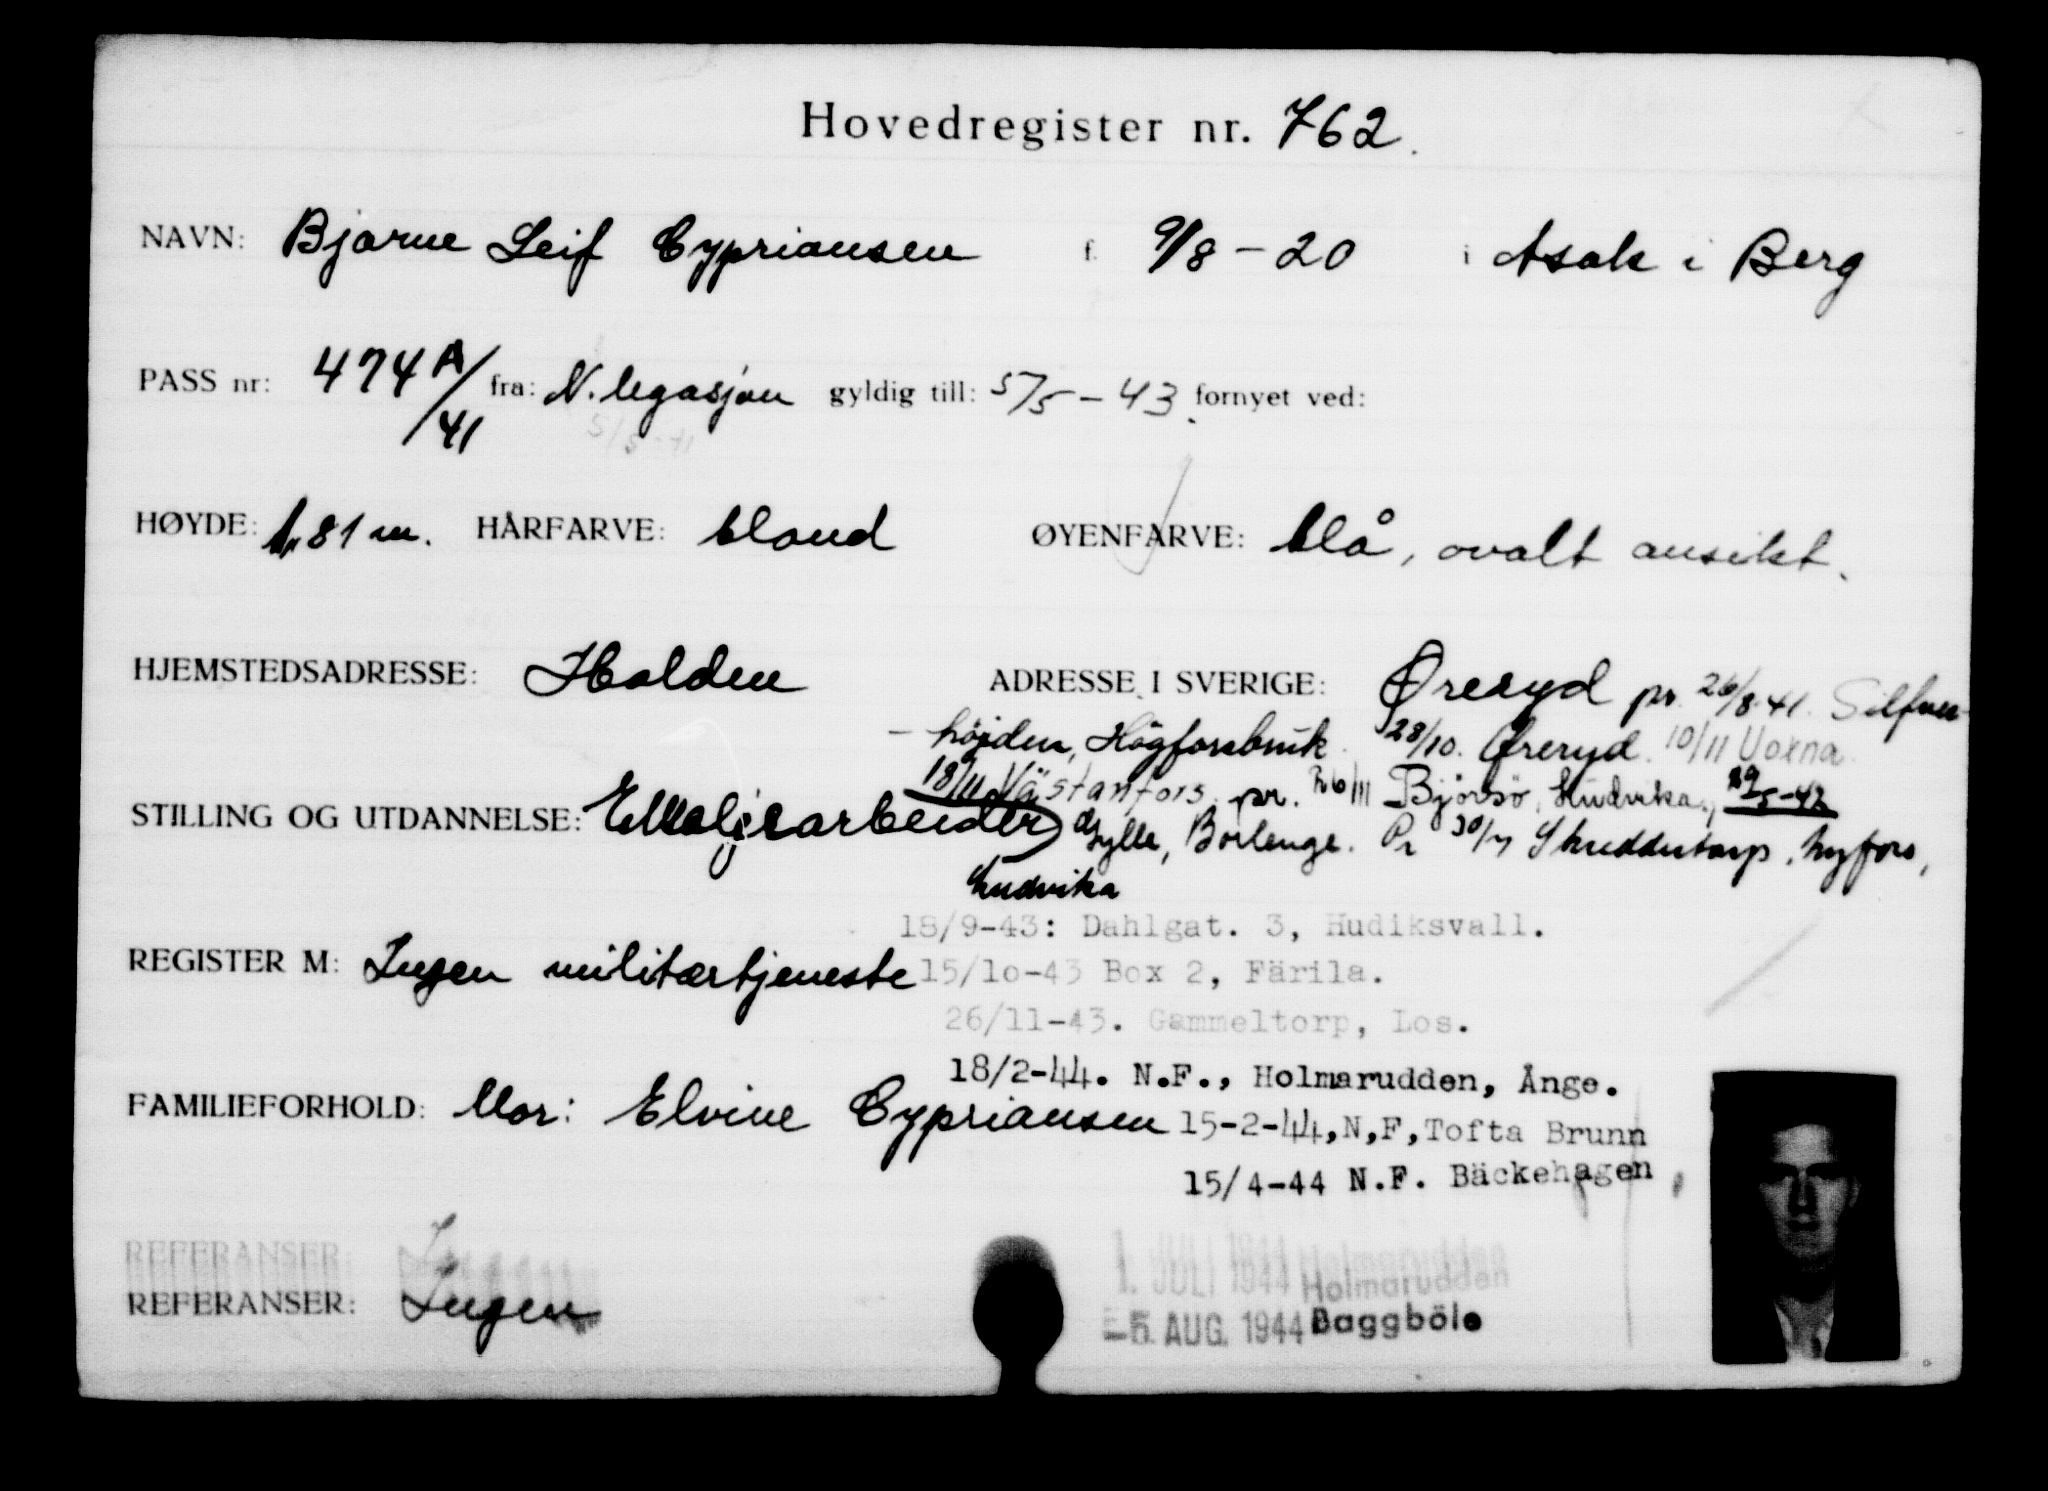 Hovedregister nr. 762.
NAVN: Bjarne Leif Cypriansen f. 9/8-20 i Asak i Berg
PASS nr: 474A/41 fra: N. legasjon gyldig till: 5/5-43 fornyet ved:
5/5-41
HØYDE: 1,81 m. HÅRFARVE: blond ØYENFARVE: blå, ovalt ansikt.
HJEMSTEDSADRESSE: Halden ADRESSE I SVERIGE: Øreryd pr. 26/8-41. Silfver-
höjden, Högforsbruk. 28/10. Øreryd. 10/11 Voxna
18/11 Västanfors. pr. Björsjö, Ludvika, 29/5-42
STILLING OG UTDANNELSE: Emaljearbeider Gylle, Borlenge. Pr 30/7 Nyfors,
Ludvika
18/9-43: Dahlgat. 3, Hudiksvall.
REGISTER M: Ingen militærtjeneste 15/10-43 Box 2, Färila.
26/11-43. Gammeltorp, Los.
18/2-44. N.F., Holmarudden, Ånge.
FAMILIEFORHOLD: Mor: Elvine Cypriansen 15-2-44,N,F,Tofta Brunn
15/4-44 N.F. Bäckehagen
1. JULI 1944 Holmarudden
REFERANSER: Ingen -5. AUG. 1944 Baggböle